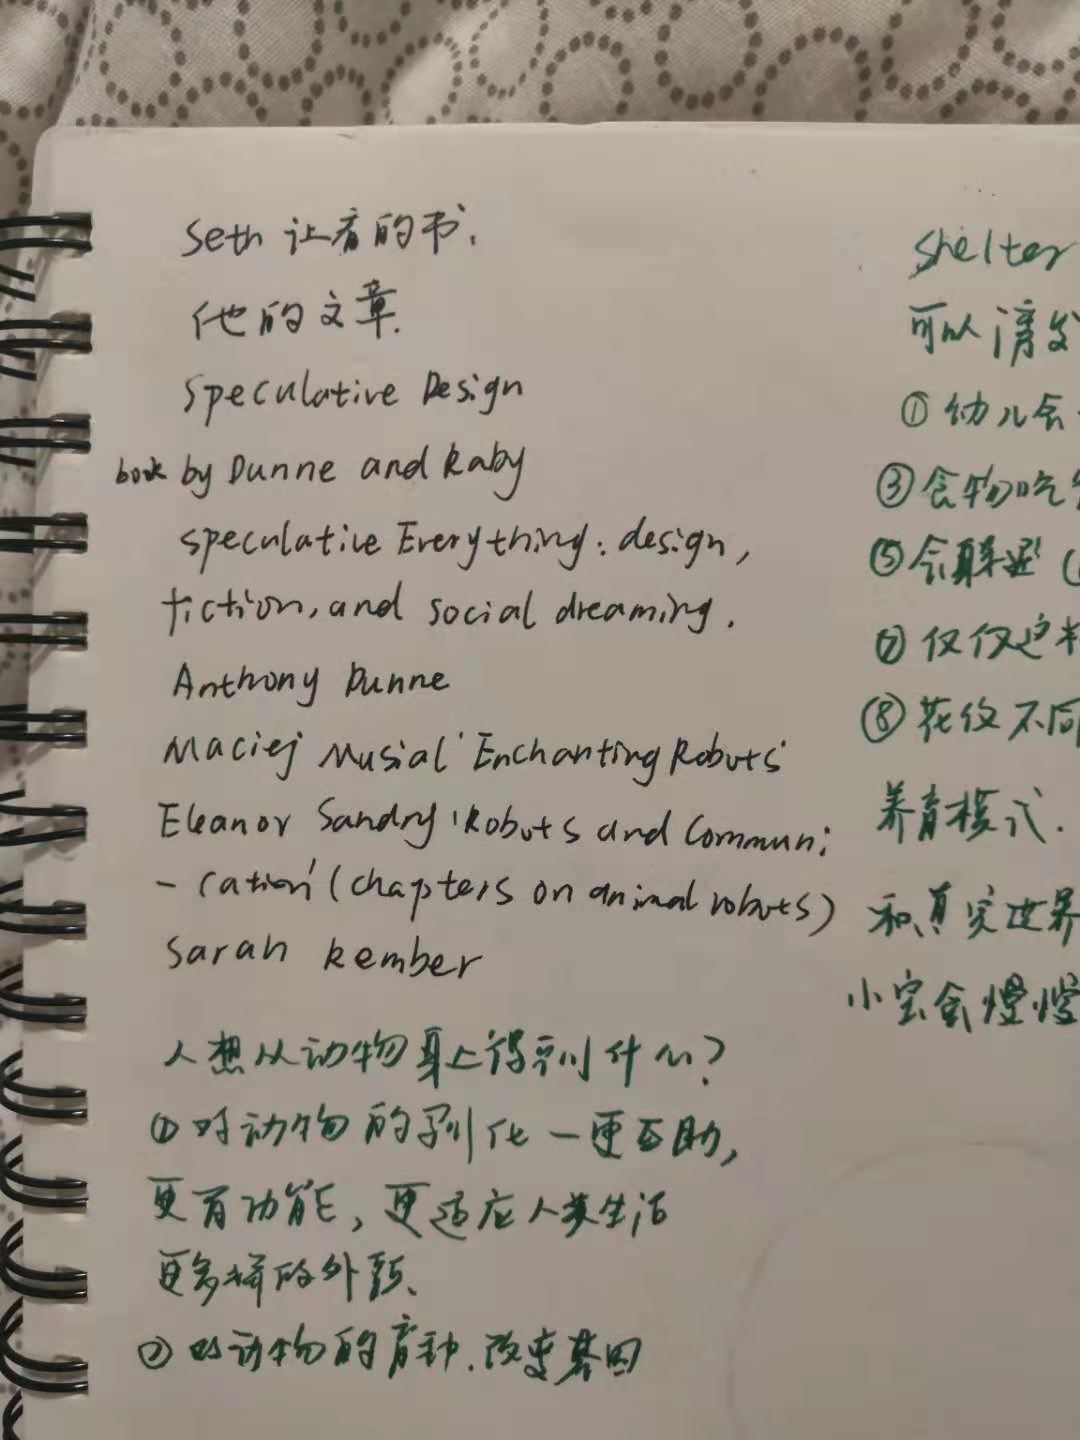 Seth 让看的书.
他的文章.
Speculative Design
book by Dunne and Raby
speculative Everything: design,
fiction, and social dreaming.
Anthony Dunne
Maciej Musial 'Enchanting Robots'
Eleanor Sandry 'Robots and Communi
-cation' (chapters on animal robots)
Sarah Kember
人想从动物身上得到什么?
① 对动物的驯化一更互助,
更有功能, 更适应人类生活
更多样的外颜、
② 对动物的育种. 改变基因
shelter
可以
① 幼儿会
③ 食物吃
⑤ 会
⑦ 仅仅这
⑧ 花纹不同
养育模式.
和真实世界
小宝会慢慢